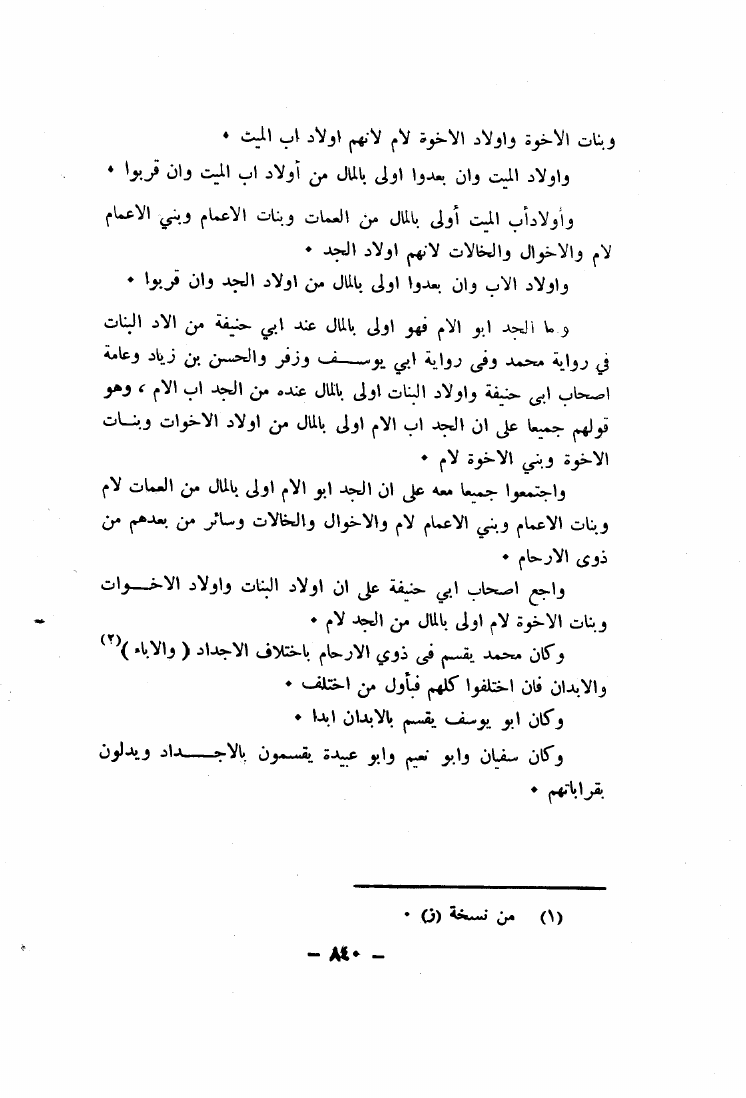 وبنات الاخوة واولاد الاخوة لام لانهم اولاد اب الميت ٠
واولاد الميت وان بعدوا اولى بالمال من أولاد اب الميت وان قربوا ٠
وأولادأب الميت أولى بالمال من العمات وبنات الاعمام وبني الاعمام
لام والاخوال والخالات لانهم اولاد الجد ٠
واولاد الاب وان بعدوا اولى بالمال من اولاد الجد وان قربوا ٠
وما الجد ابو الام فهو اولى بالمال عند ابي حنيفة من الاد البنات
في رواية محمد وفى رواية ابي يوسف وزفر والحسن بن زياد وعامة
اصحاب ابى حنيفة واولاد البنات اولى بالمال عنده من الجد اب الام ، وهو
قولهم جميعا على ان الجد اب الام اولى بالمال من اولاد الاخوات وبنات
الاخوة وبني الاخوة لام ٠
واجتمعوا جميعا معه على ان الجد ابو الام اولى بالمال من العمات لام
وبنات الاعمام وبني الاعمام لام والاخوال والخالات وسائر من بعدهم من
ذوى الارحام ٠
واجع اصحاب ابي حنيفة على ان اولاد البنات واولاد الاخوات
وبنات الاخوة لام اولى بالمال من الجد لام ٠
وكان محمد يقسم فى ذوي الارحام باختلاف الاجداد ( والاباء )(٢)
والابدان فان اختلفوا كلهم فبأول من اختلف ٠
وكان ابو يوسف يقسم بالابدان ابدا ٠
وكان سفيان وابو نعيم وابو عبيدة يقسمون بالاجداد ويدلون
بقراباتهم ٠
(١) من نسخة (ز) ٠
– ٨٤٠ –